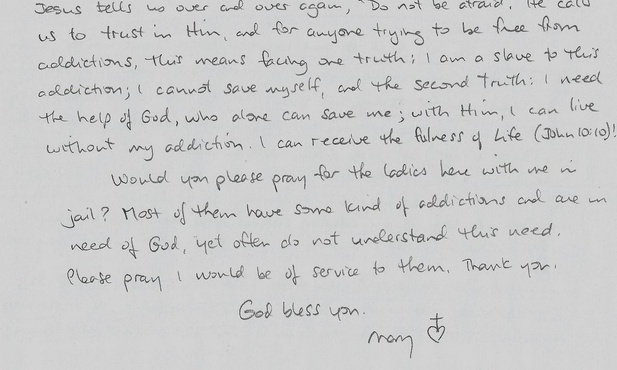 Jesus tells us over and over again, "Do not be afraid. He calls
us to trust in Him, and for anyone trying to be free from
addictions, this means facing one truth: I am a slave to this
addiction; I cannot save myself, and the second truth: I need
the help of God, who alone can save me; with Him, I can live
without my addiction. I can receive the fulness of Life (John 10:10)!
Would you please pray for the ladies here with me in
jail? Most of them have some kind of addictions and are in
need of God, yet often do not understand this need.
Please pray I would be of service to them. Thank you.
God bless you.
Mary